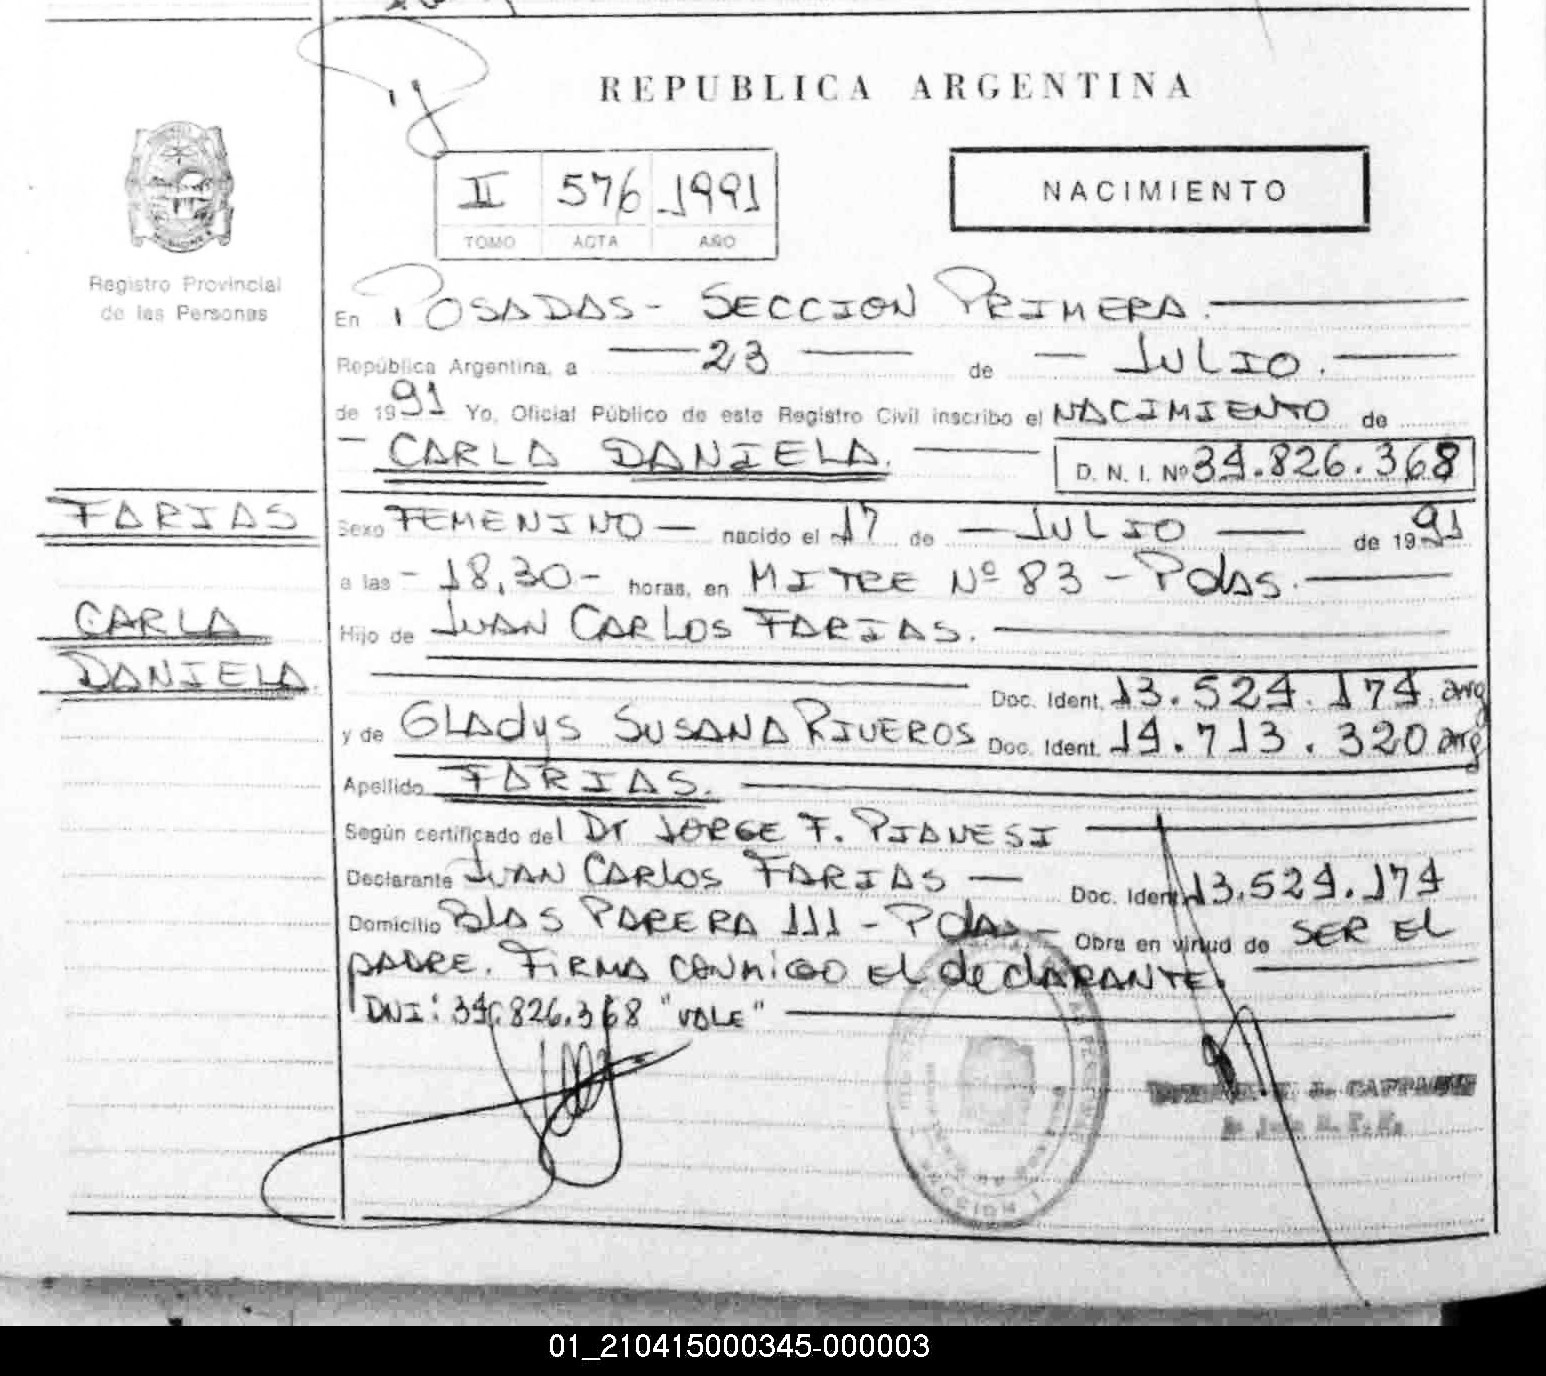 REPUBLICA ARGENTINA
II 576 1991
TOMO ACTA AÑO
NACIMIENTO
Registro Provincial
de las Personas
En POSADAS - SECCION PRIMERA.
República Argentina, a 23 de JULIO.
de 1991 Yo, Oficial Público de este Registro Civil inscribo el NACIMIENTO de
CARLA DANIELA. D. N. I. Nº 34.826.368
FARIAS
CARLA
DANIELA.
Sexo FEMENINO - nacido el 17 de JULIO de 1991
a las - 18,30 - horas, en MITRE Nº 83 - Pdas.
Hijo de JUAN CARLOS FARIAS.
Doc. Ident. 13.524.174. arg
y de GLAdyS SUSANA RIVEROS Doc. Ident. 14.713.320 arg
Apellido FARIAS.
Según certificado del Dr JORGE F. PIANESI
Declarante JUAN CARLOS FARIAS - Doc. Ident. 13.524.174
Domicilio BLAS PARERA 111 - Pdas - Obra en virtud de SER EL
PADRE. FIRMA CONMIGO EL deCLARANTE.
DNI: 34.826.368 "VALE"
MISIONES
01_210415000345-000003